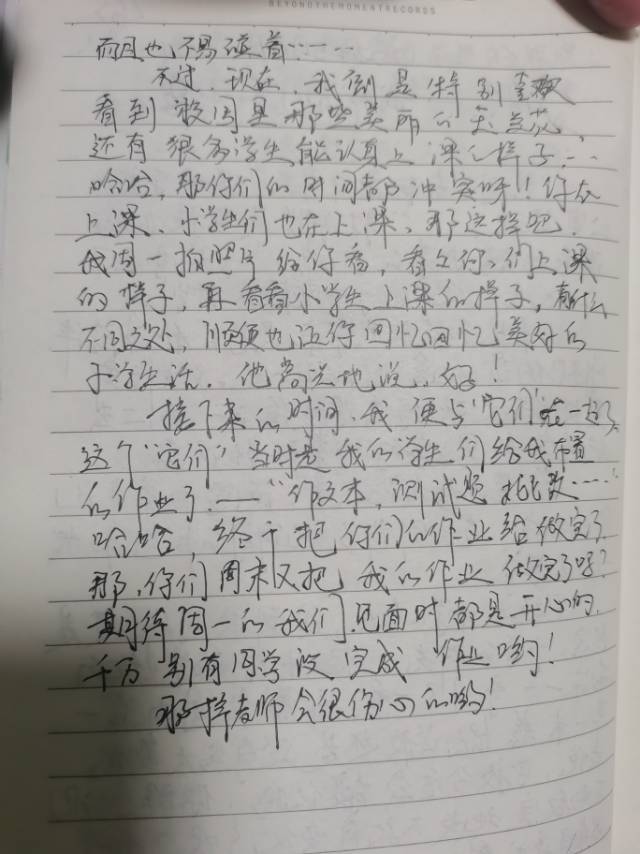 BEYONDTHEMOMENTRECORDS
而且也不易碰着……
不过,现在,我倒是特别喜欢
看到校园里那些美丽的玉兰花,
还有很多学生能认真上课的样子…
哈哈,那你们的时间都冲突呀!你在
上课、小学生们也在上课、那这样吧.
我周一拍照片给你看,看看你们上课
的样子,再看看小学生上课的样子,有什么
不同之处,顺便也让你回忆回忆美好的
小学生活.他高兴地说:好!
接下来的时间,我便与“它们”在一起了
这个“它们”当时是我的学生们给我布置
的作业了.——“作文本,测试题
哈哈,终于把你们的作业给做完了
那,你们周末又把我的作业做完了吗?
期待周一的我们,见面时都是开心的
千万别有同学没完成作业哟!
那样老师会很伤心的哟!